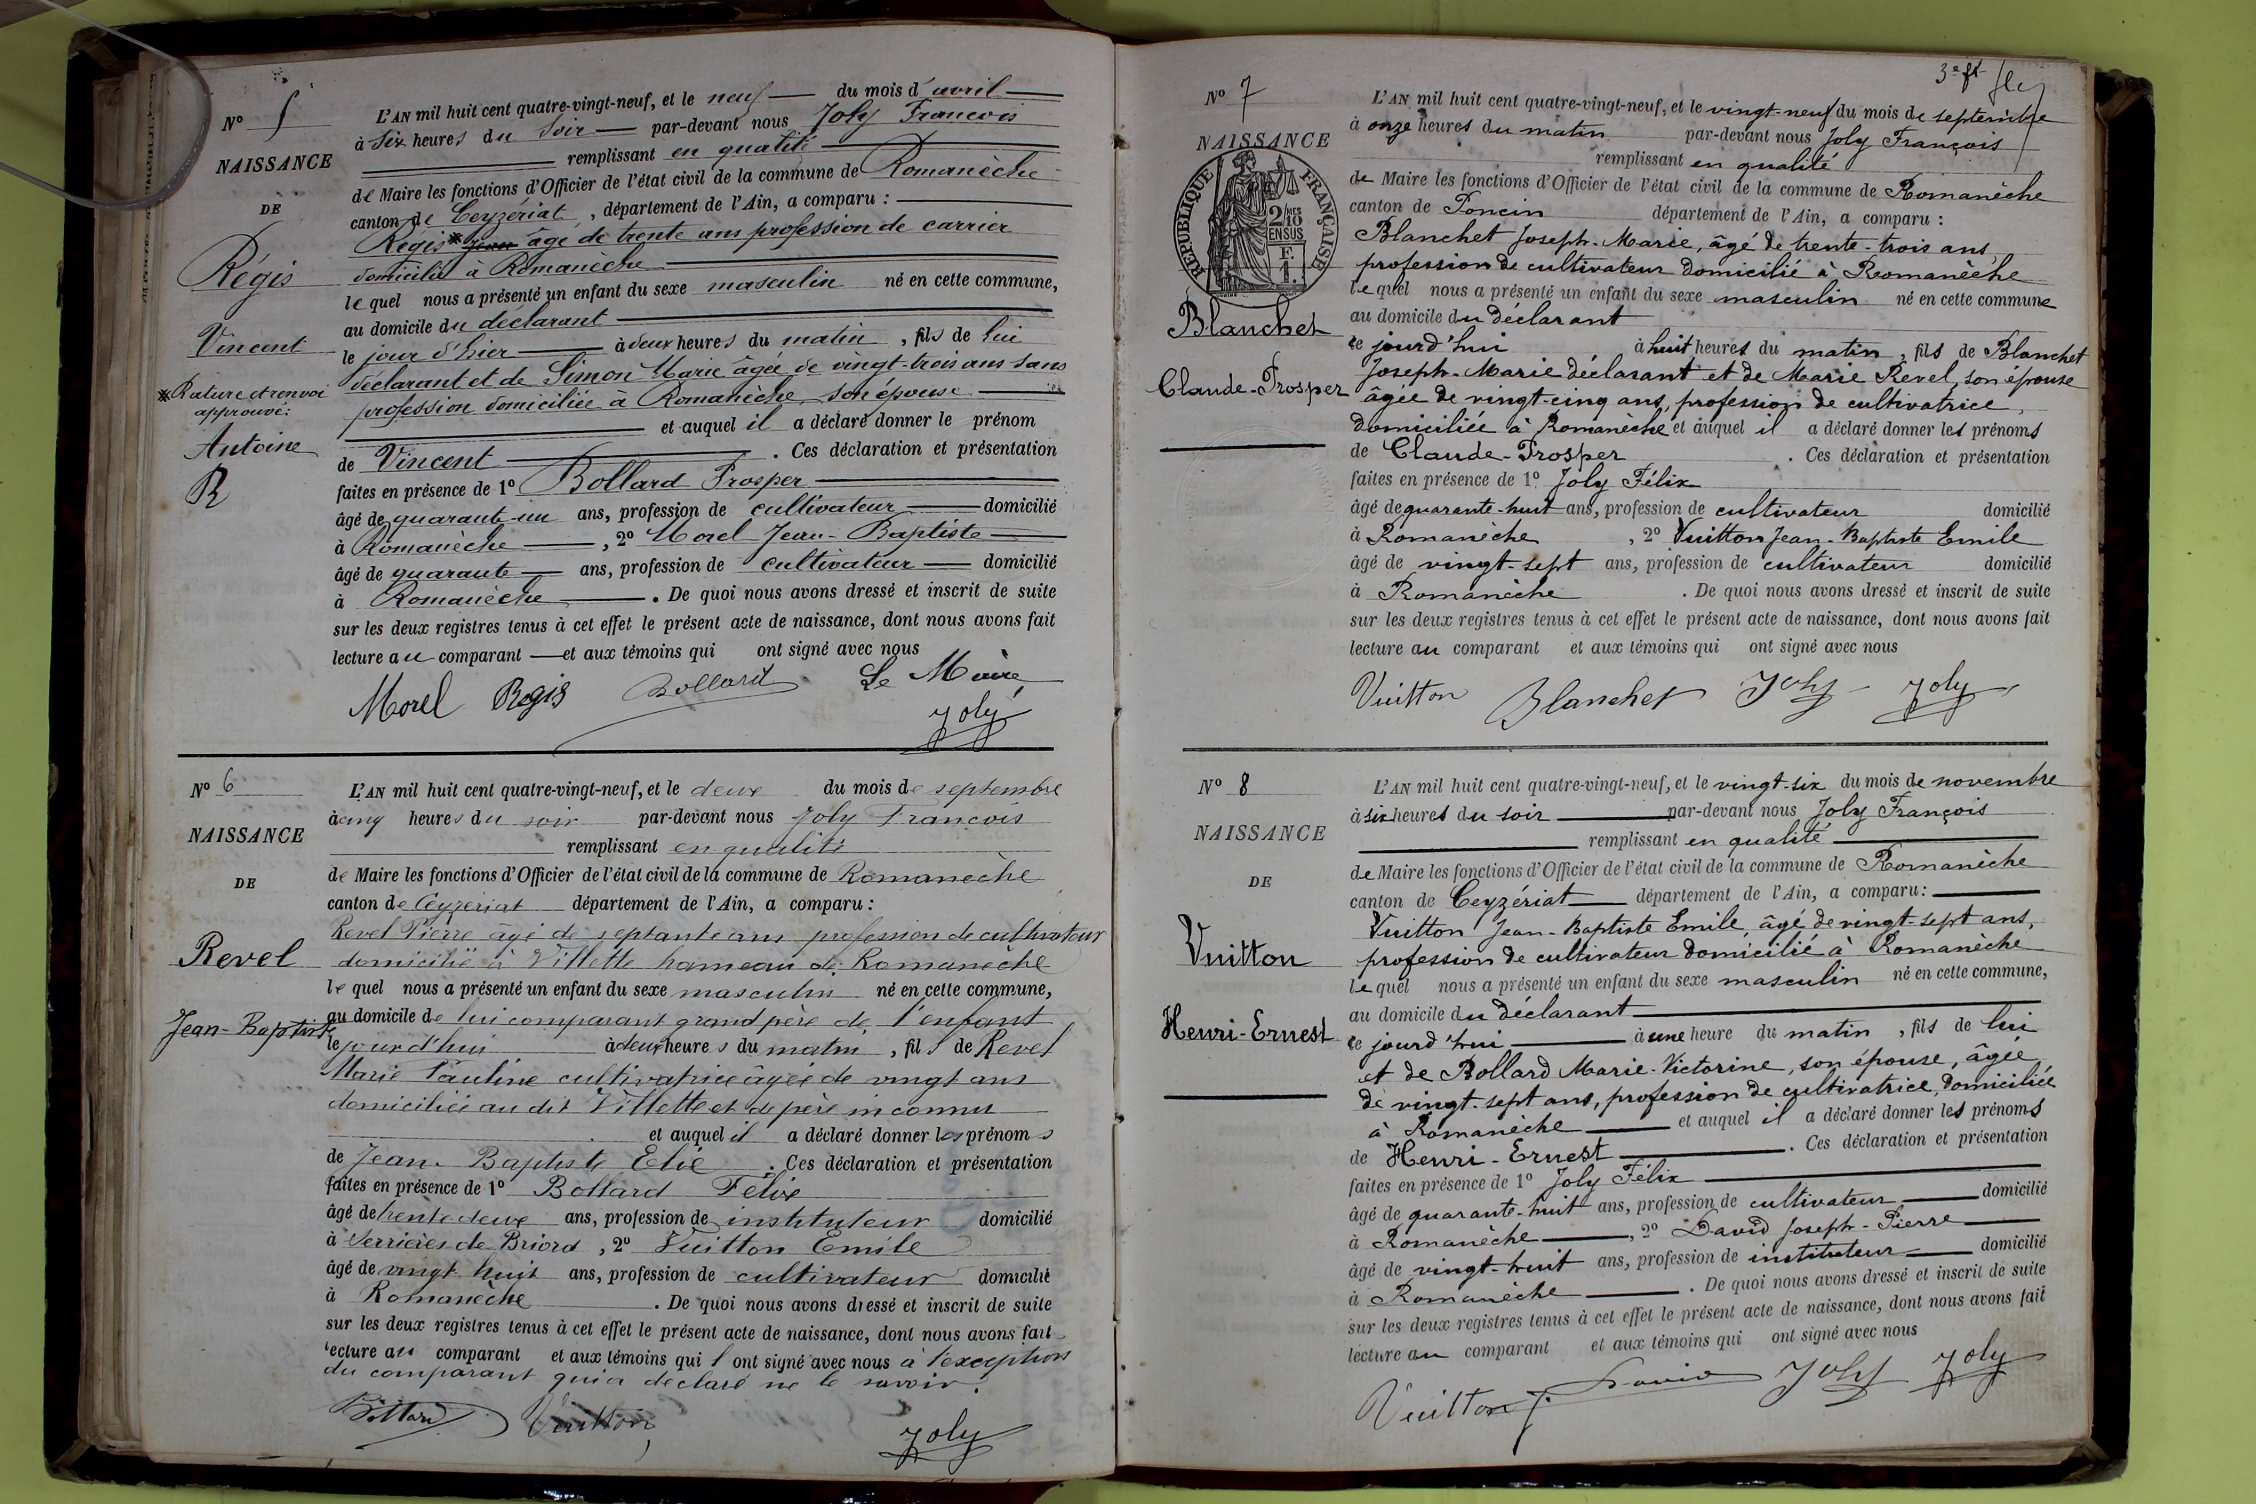 N° 5
NAISSANCE
DE
Régis
Vincent
*Rature et renvoi
approuvé:
Antoine
R
L'AN mil huit cent quatre-vingt-neuf, et le neuf du mois d'avril
à six heures du soir par-devant nous Joly Francois
remplissant en qualité
de Maire les fonctions d'Officier de l'état civil de la commune de Romanèche
canton de Ceyzériat, département de l'Ain, a comparu :
Régis* Jean âgé de trente ans profession de carrier
domicilié à Romanèche
lequel nous a présenté un enfant du sexe masculin né en cette commune,
au domicile du déclarant
le jour d'hier à deux heures du matin, fils de lui
déclarant et de Simon Marie âgée de vingt-trois ans sans
profession domiciliée à Romanèche, son épouse
et auquel il a déclaré donner le prénom
de Vincent . Ces déclaration et présentation
faites en présence de 1° Bollard Prosper
âgé de quarante-un ans, profession de cultivateur domicilié
à Romanèche, 2° Morel Jean-Baptiste
âgé de quarante ans, profession de cultivateur domicilié
à Romanèche. De quoi nous avons dressé et inscrit de suite
sur les deux registres tenus à cet effet le présent acte de naissance, dont nous avons fait
lecture au comparant et aux témoins qui ont signé avec nous
Morel Regis Bollard Le Maire
Joly
N° 6
NAISSANCE
DE
Revel
Jean-Baptiste
L'AN mil huit cent quatre-vingt-neuf, et le deux du mois de septembre
à cinq heures du soir par-devant nous Joly Francois
remplissant en qualité
de Maire les fonctions d'Officier de l'état civil de la commune de Romanèche
canton de Ceyzeriat département de l'Ain, a comparu :
Revel Pierre âgé de septante ans profession de cultivateur
domicilié à Villette hameau de Romanèche
lequel nous a présenté un enfant du sexe masculin né en cette commune,
au domicile de lui comparant grand père de l'enfant
le jourd'hui à deux heures du matin, fils de Revel
Marie Pauline cultivatrice âgée de vingt ans
domiciliée au dit Villette et de père inconnu
et auquel il a déclaré donner les prénoms
de Jean-Baptiste Elie . Ces déclaration et présentation
faites en présence de 1° Bollard Félix
âgé de trente deux ans, profession de instituteur domicilié
à Serrières de Briord, 2° Vuitton Emile
âgé de vingt huit ans, profession de cultivateur domicilié
à Romanèche. De quoi nous avons dressé et inscrit de suite
sur les deux registres tenus à cet effet le présent acte de naissance, dont nous avons fait
lecture au comparant et aux témoins qui l'ont signé avec nous à l'exception
du comparant qui a déclaré ne le savoir.
Bollard Vuitton
Joly
3e ft
N° 7
NAISSANCE
RÉPUBLIQUE FRANÇAISE
2/10MES
EN SUS
F.
1.
Blanchet
Claude-Prosper
L'AN mil huit cent quatre-vingt-neuf, et le vingt-neuf du mois de septembre
à onze heures du matin par-devant nous Joly François
remplissant en qualité
de Maire les fonctions d'Officier de l'état civil de la commune de Romanèche
canton de Poncin département de l'Ain, a comparu :
Blanchet Joseph-Marie, âgé de trente-trois ans,
profession de cultivateur domicilié à Romanèche
lequel nous a présenté un enfant du sexe masculin né en cette commune
au domicile du déclarant
ce jourd'hui à huit heures du matin, fils de Blanchet
Joseph-Marie déclarant et de Marie Revel, son épouse
âgée de vingt-cinq ans, profession de cultivatrice,
domiciliée à Romanèche et auquel il a déclaré donner les prénoms
de Claude-Prosper . Ces déclaration et présentation
faites en présence de 1° Joly Félix
âgé de quarante-huit ans, profession de cultivateur domicilié
à Romanèche, 2° Vuitton Jean-Baptiste Emile
âgé de vingt-sept ans, profession de cultivateur domicilié
à Romanèche . De quoi nous avons dressé et inscrit de suite
sur les deux registres tenus à cet effet le présent acte de naissance, dont nous avons fait
lecture au comparant et aux témoins qui ont signé avec nous
Vuitton Blanchet Joly Joly
N° 8
NAISSANCE
DE
Vuitton
Henri-Ernest
L'AN mil huit cent quatre-vingt-neuf, et le vingt-six du mois de novembre
à six heures du soir par-devant nous Joly François
remplissant en qualité
de Maire les fonctions d'Officier de l'état civil de la commune de Romanèche
canton de Ceyzériat département de l'Ain, a comparu:
Vuitton Jean-Baptiste Emile, âgé de vingt-sept ans,
profession de cultivateur domicilié à Romanèche
lequel nous a présenté un enfant du sexe masculin né en cette commune,
au domicile du déclarant
ce jourd'hui à une heure du matin, fils de lui
et de Bollard Marie-Victorine, son épouse, âgée
de vingt-sept ans, profession de cultivatrice, domiciliée
à Romanèche et auquel il a déclaré donner les prénoms
de Henri-Ernest . Ces déclaration et présentation
faites en présence de 1° Joly Félix
âgé de quarante-huit ans, profession de cultivateur domicilié
à Romanèche, 2° David Joseph-Pierre
âgé de vingt-huit ans, profession de instituteur domicilié
à Romanèche . De quoi nous avons dressé et inscrit de suite
sur les deux registres tenus à cet effet le présent acte de naissance, dont nous avons fait
lecture au comparant et aux témoins qui ont signé avec nous
Vuitton J. David Joly Joly